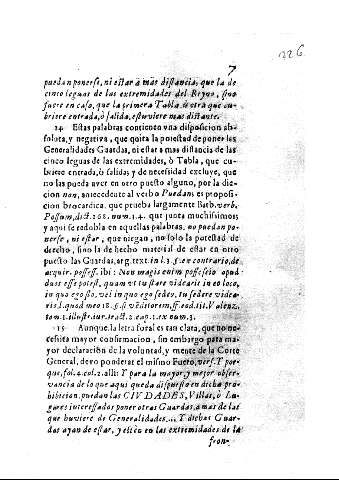 7
226
puedan ponerse, ni estar à mas distancia, que la de
cinco leguas de las extremidades del Reyno, sino
fuere en caso, que la primera Tabla ò otra que cu-
briere entrada, ò salida, estuviere mas distante.
14 Estas palabras contienen una disposicion ab-
soluta, y negativa, que quita la potestad de poner les
Generalidades Guardas, ni estar a mas distancia de las
cinco leguas de las extremidades, ò Tabla, que cu-
briere entrada, ò salida; y de necessidad excluye, que
no las pueda aver en otro puesto alguno, por la dic-
cion non, antecedente al verbo Puedan; es proposi-
cion brocardica, que prueba largamente Barb. verb.
Possum, dict. 268. num. 3. 4. que junta muchissimos;
y aqui se redobla en aquellas palabras, no puedan po-
nerse, ni estar, que niegan, no solo la potestad de
derecho, sino la de hecho material de estar en otro
puesto las Guardas, arg. text. in l. 3. §. ex contrario, de
acquir. possess. ibi: Non magis enim possessio apud
duos esse potest, quam ut tu stare videaris in eo loco,
in quo ego sto, vel in quo ego sedeo, tu sedere videa-
ris
tom. 1. illustr. iur. tract. 2. cap. 1. ex num. 3.
15 Aunque la letra foral es tan clara, que no ne-
cessita mayor confirmacion, sin embargo para ma-
yor declaracion de la voluntad, y mente de la Corte
General, devo ponderar el mismo Fuero, vers. Y por-
que, fol. 4. col. 2. alli: Y para la mayor, y mejor obser-
vancia de lo que aqui queda dispuesto en dicha pro-
hibicion, puedan las CIUDADES, Villas, ò Lu-
gares interessados poner otras Guardas, a mas de las
que huviere de Generalidades... Y dichas Guar-
das ayan de estar, y estèn en las extremidades de la
fron-